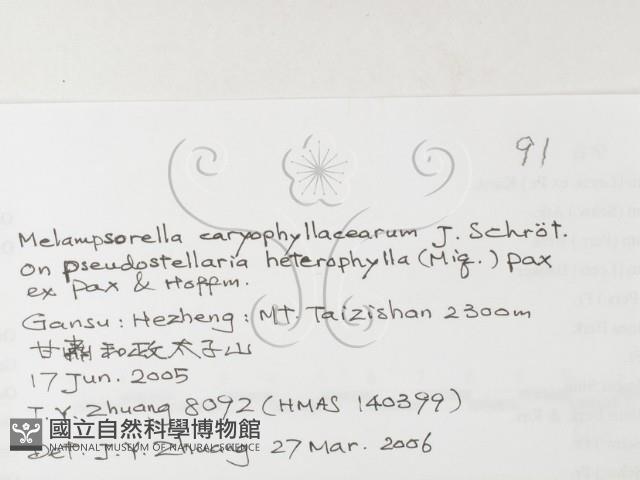 91
Melampsorella caryophyllacearum J. Schröt.
on pseudostellaria heterophylla (Miq.) pax
ex pax & Hoffm.
Gansu: Hezheng: Mt. Taizishan 2300m
甘肅和政太子山
17 Jun. 2005
J. Y. Zhuang 8092 (HMAS 140399)
國立自然科學博物館
NATIONAL MUSEUM OF NATURAL SCIENCE
Det. J. Y. Zhuang 27 Mar. 2006